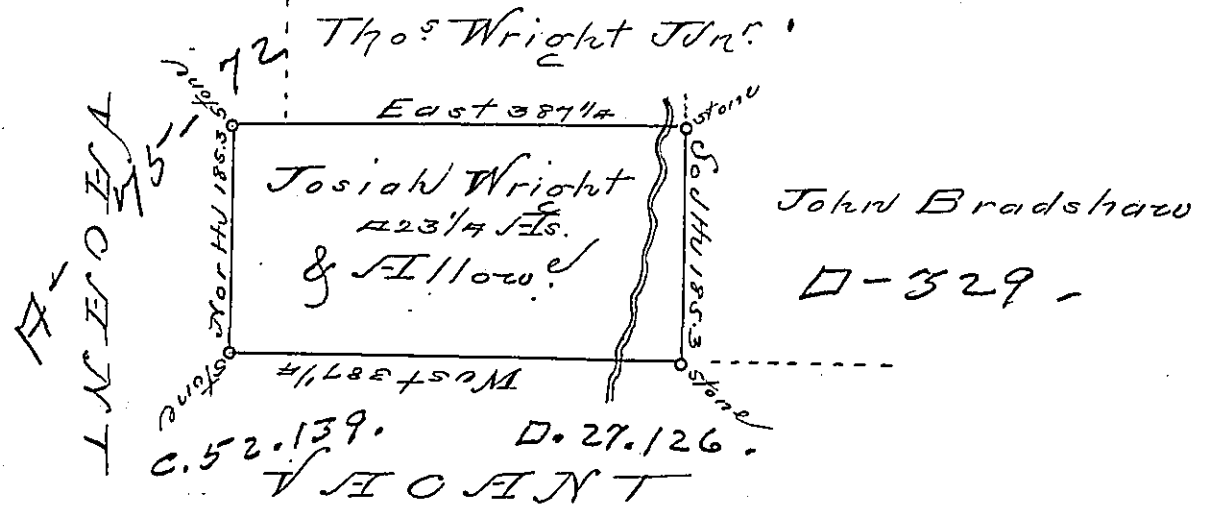 Thos. Wright Junr.
72
stone
East 387 1/4
stone
VACANT
North 185.3
Josiah Wright
423 1/4 As.
& Allow.e
South 185.3
John Bradshaw
D-329 -
stone
West 387 1/4
stone
C.52.139.
D.27.126.
VACANT